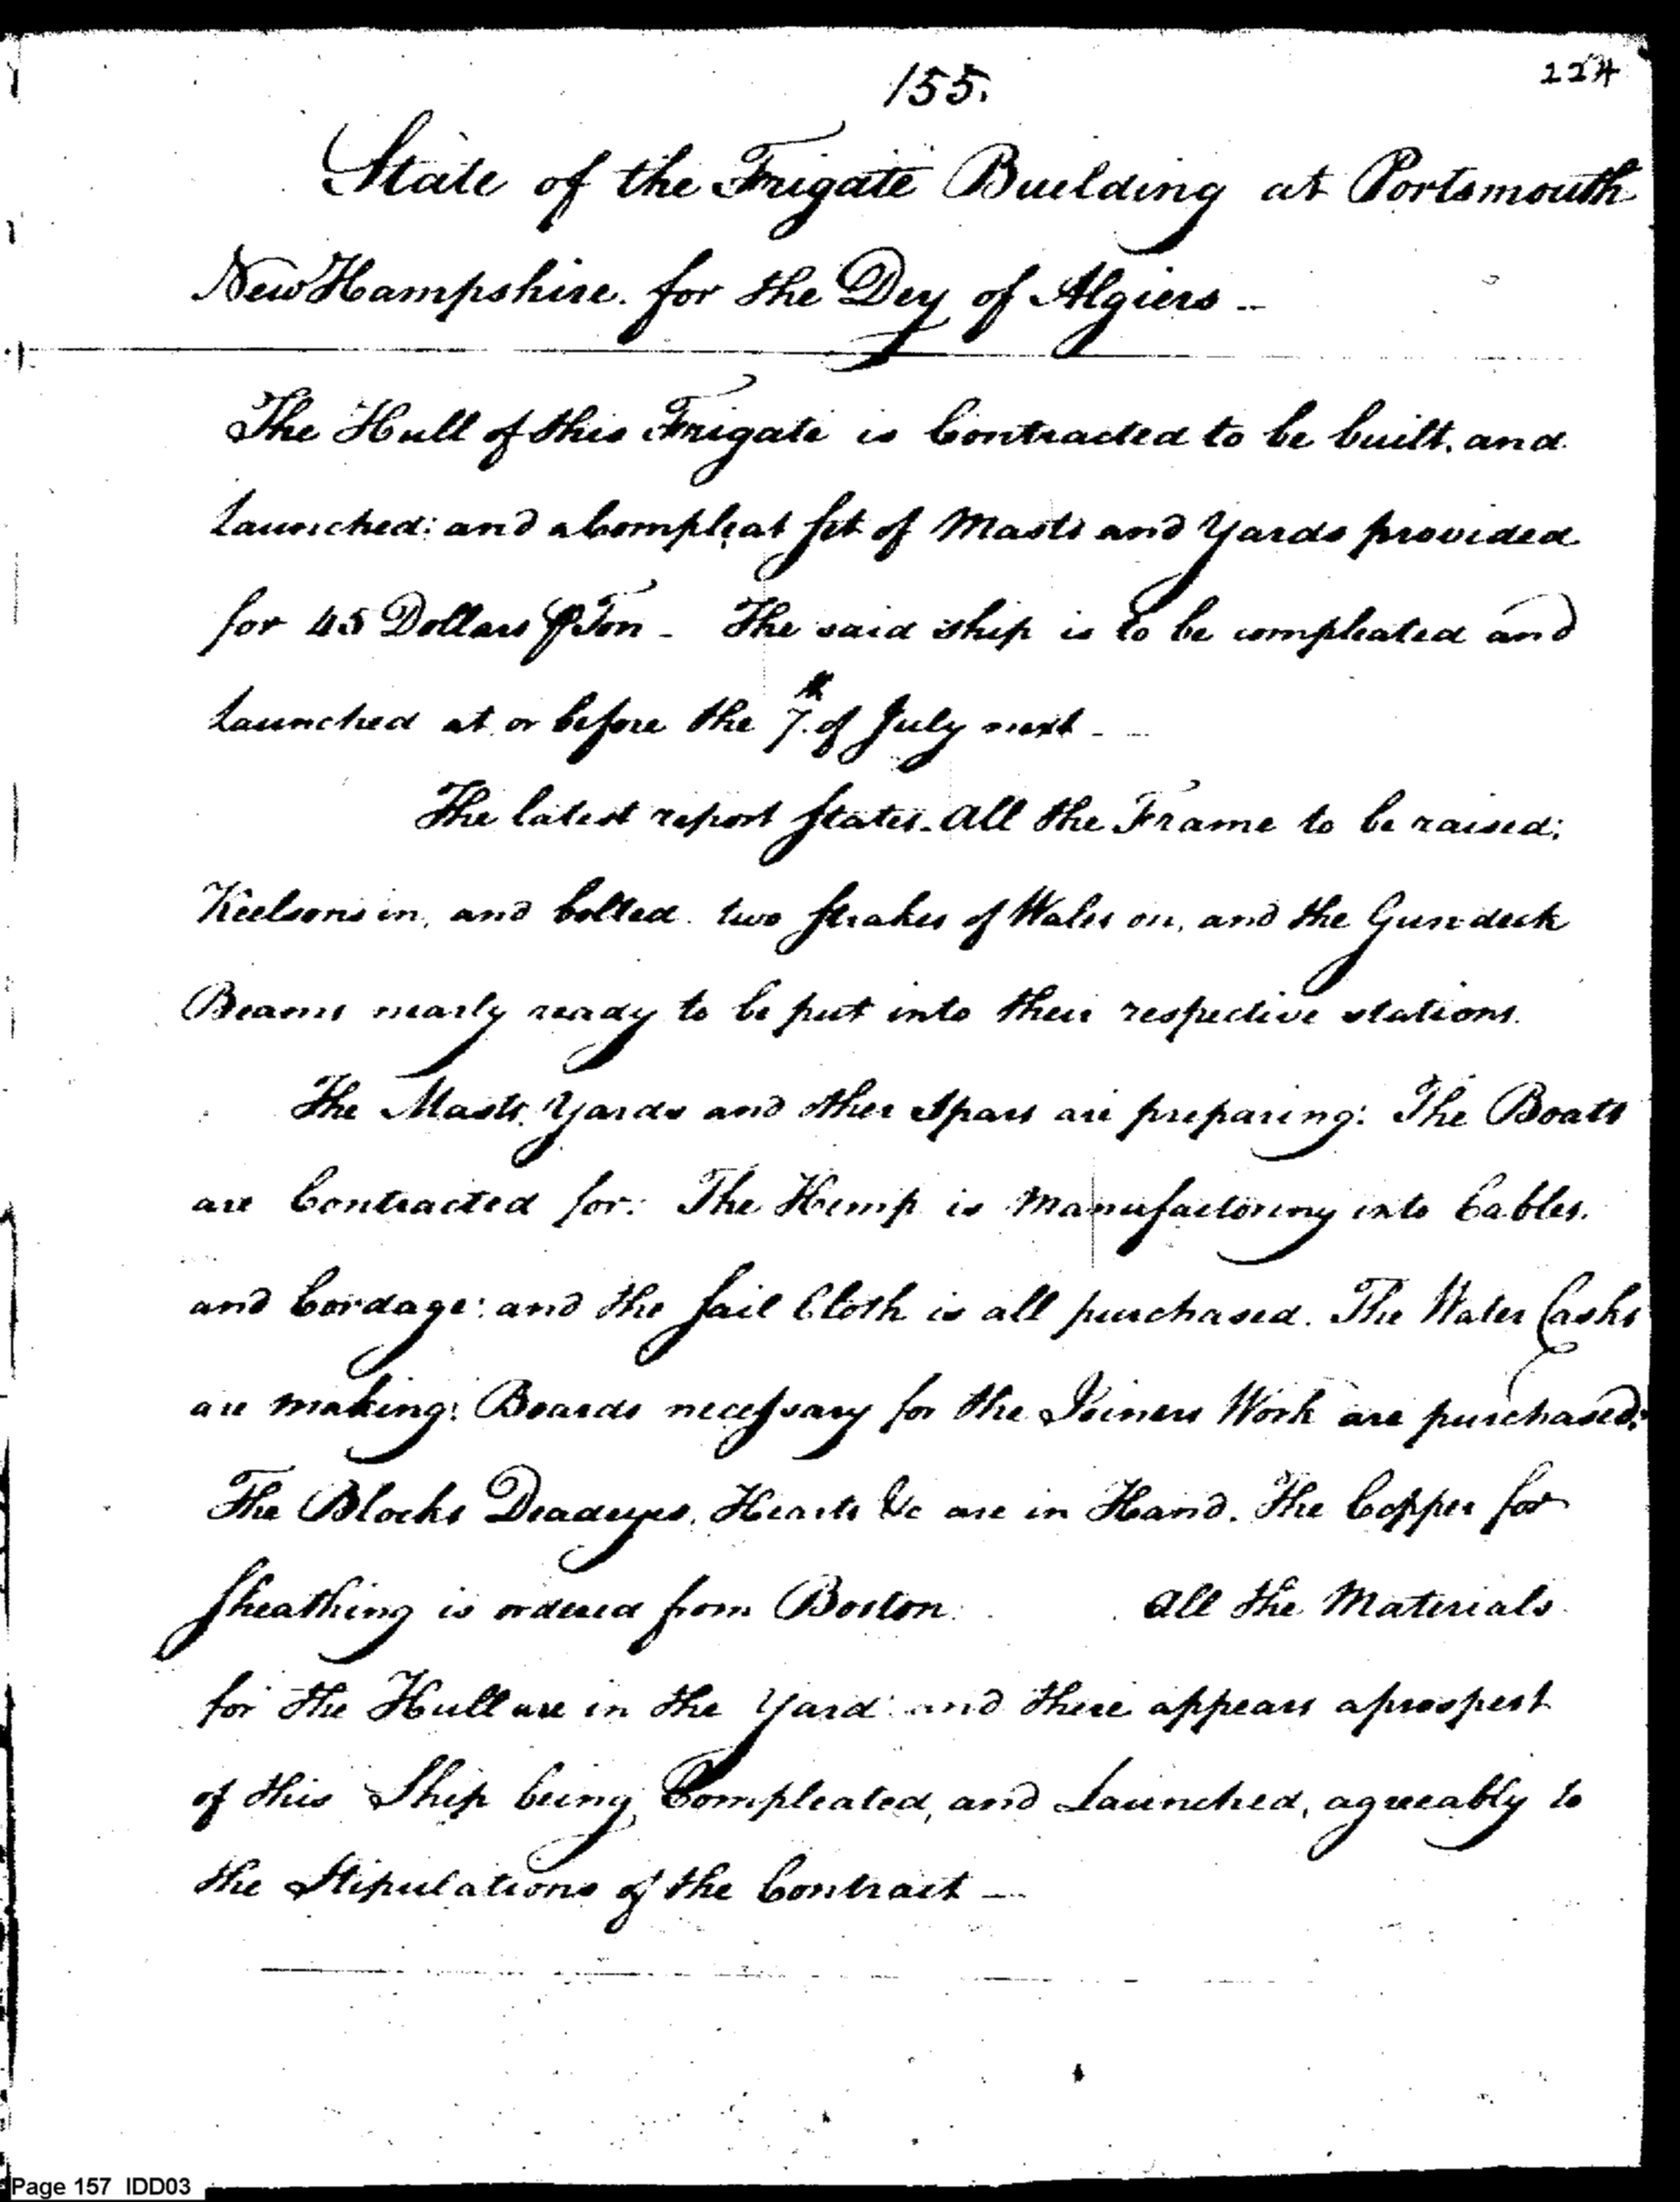 155.
224
State of the Frigate Building at Portsmouth
New Hampshire. for the Dey of Algiers -
The Hull of this Frigate is Contracted to be built, and
Launched: and a Compleat set of Masts and Yards provided
for 45 Dollars ⅌ Ton - The said ship is to be compleated and
Launched at or before the 7th of July next - -
The latest report states. All the Frame to be raised;
Keelsons in, and bolted. two strakes of Wales on, and the Gun deck
Beams nearly ready to be put into their respective stations.
The Masts, Yards and other Spars are preparing: The Boats
are Contracted for: The Hemp is Manufactoring into Cables,
and Cordage: and the sail Cloth is all purchased. The Water Casks
are making: Boards necessary for the Joiners Work are purchased:
The Blocks Deadeyes, Hearts &c are in Hand. The Copper for
sheathing is ordered from Boston. All the Materials
for the Hull are in the Yard: and there appears a prospect
of this Ship being Compleated, and Launched, agreeably to
the Stipulations of the Contract -
Page 157 IDD03